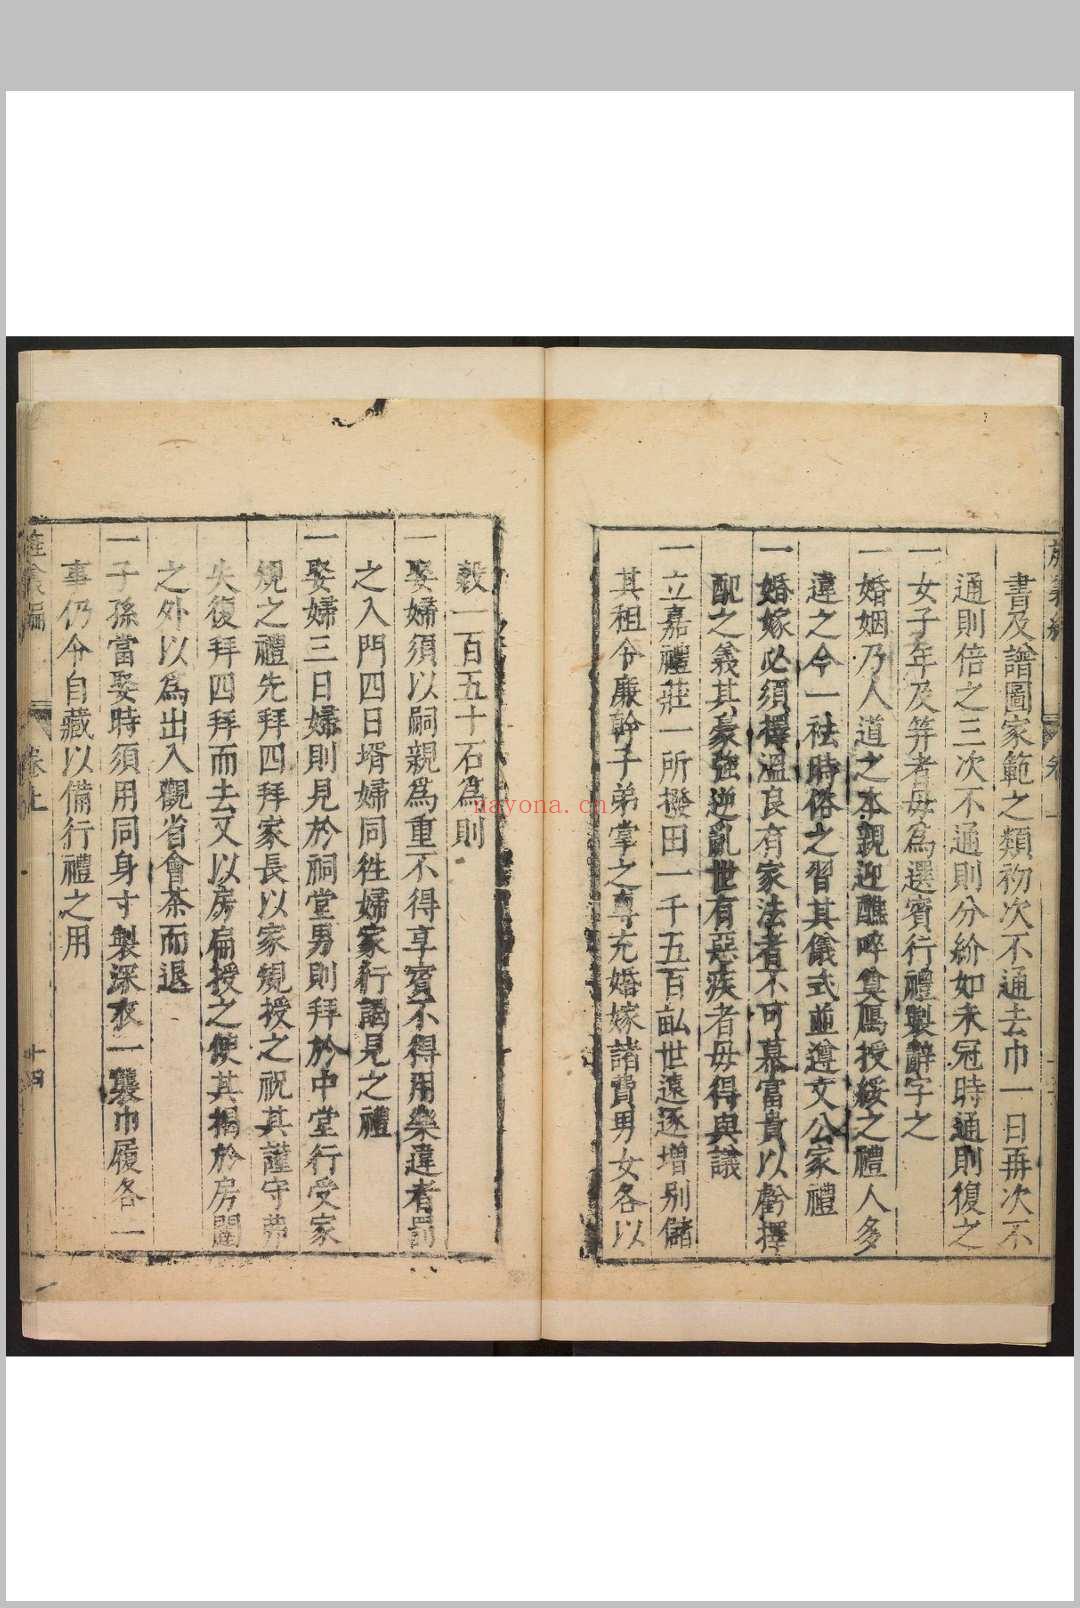 書及譜圖家範之類初次不通去巾一日再次不
通則倍之三次不通則分紒如未冠時通則復之
一女子年及笄者母為選賓行禮製辭字之
一婚姻乃人道之本親迎醮啐奠鴈授綏之禮人多
違之今一祛時俗之習其儀式並遵文公家禮
一婚嫁必須擇溫良有家法者不可慕富貴以虧擇
配之義其豪強逆亂世有惡疾者毋得與議
一立嘉禮莊一所撥田一千五百畝世遠逐增別儲
其租令廉幹子弟掌之專充婚嫁諸費男女各以
穀一百五十石爲則
一娶婦須以嗣親爲重不得享賓不得用樂違者罰
之入門四日壻婦同徃婦家行謁見之禮
一娶婦三日婦則見於祠堂男則拜於中堂行受家
規之禮先拜四拜家長以家規授之祝其謹守勿
失復拜四拜而去又以房扁授之使其揭於房闥
之外以爲出入觀省會茶而退
一子孫當娶時須用同身寸製深衣一襲巾履各一
事仍令自藏以備行禮之用
卷上
十四
nayona.cn